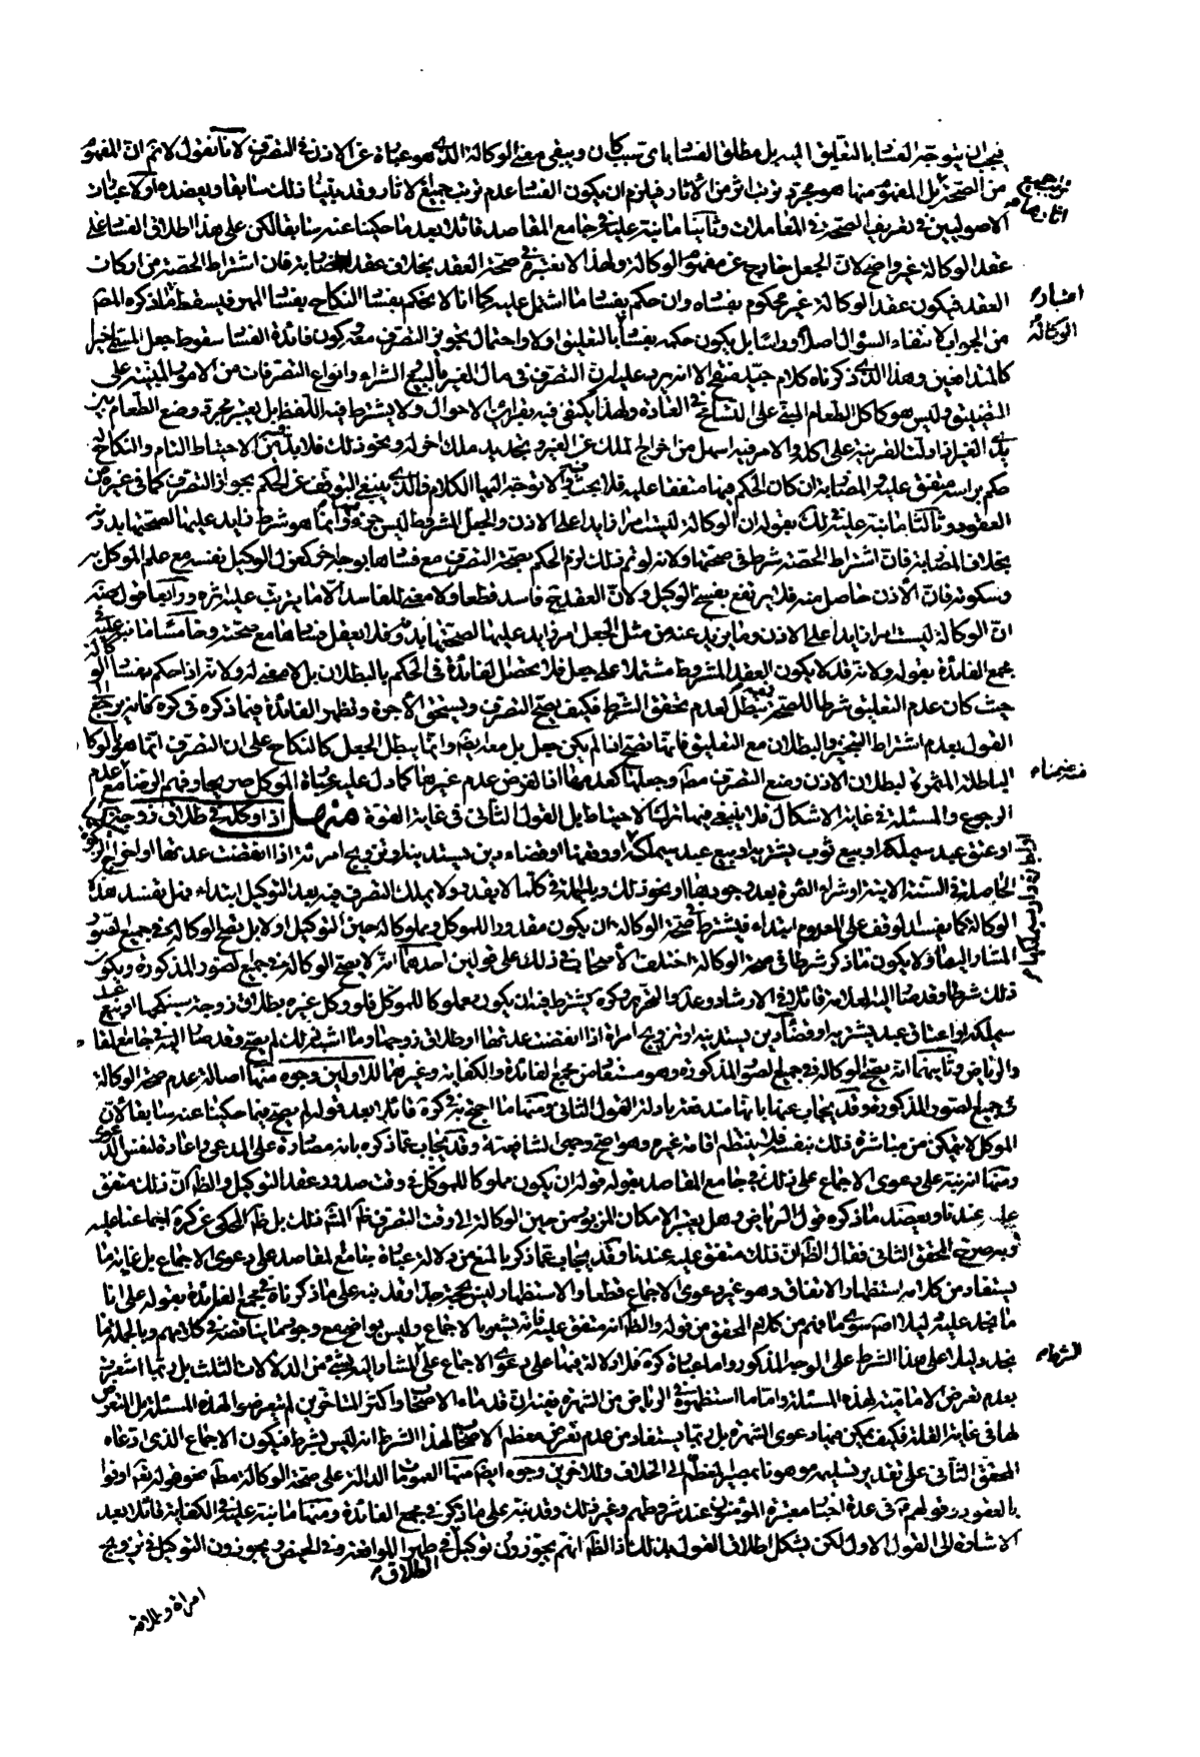 فيجب ان يتوجه الفساد بالتعليق اليه بل مطلق الفساد باى سبب كان ويبقى معنى الوكالة الذى هو عبارة عن الاذن فى التصرف لانا نقول لا نم ان المفهوم
من الصحة بل المفهوم منها هو مجرد ترتب اثر من الآثار فيلزم ان يكون الفساد عدم ترتب جميع الآثار وقد بينا ذلك سابقا ويعضده اولا عبارات
الاصوليين فى تعريف الصحة فى المعاملات وثانيا ما نبه عليه فى جامع المقاصد قائلا بعد ما حكينا عنه سابقا لكن على هذا اطلاق الفساد على
عقد الوكالة غير واضح لان الجعل خارج عن مفهوم الوكالة ولهذا لا نعتبره فى صحة العقد بخلاف عقد المضاربة فان اشتراط الحصة من اركان
العقد فيكون عقد الوكالة غير محكوم بفساده وان حكم بفساد ما اشتمل عليه كما انا لا نحكم بفساد النكاح بفساد المهر فيسقط ما ذكره المصـ
من الجواب لانتفاء السؤال اصلا وراسا بل يكون حكمه بفساد بالتعليق اولا واحتمال تجويز التصرف معه ركون فائدة الفساد سقوط جعل المستاجر
كالمتدافعين وهذا الذى ذكرناه كلام جيد متجه الا انه يرد عليه ان التصرف فى مال الغير بالبيع والشراء وانواع التصرفات من الامور المبنية على
التضييق وليس هو كاكل الطعام المبنى على التسامح فى العادة ولهذا يكتفى فيه بقرائن الاحوال ولا يشترط فيه اللفظ بل يعتبر مجرد وضع الطعام بين
يدى الغير اذا دلت القرينة على اكله والامر فيه اسهل من اخراج الملك عن الغير وتجديد ملك اخر له ونحو ذلك فلا بد فيه من الاحتياط التام والنكاح له
حكم براسه متفق عليه والمضاربة ان كان الحكم فيها متفقا عليه فلا بحث فيه والا توجه اليها الكلام فالذى ينبغى التوقف عن الحكم بجواز التصرف كما فى غيره من
العقود وثالثا ما نبه عليه فى لك بقوله ان الوكالة ليست امرا زايدا على الاذن والجعل المشروط ليس جزء وانما هو شرط زايد عليها لصحتها بدونه
بخلاف المضاربة فان اشتراط الحصة شرط فى صحتها ولانه لو تم ذلك لزم الحكم بصحة التصرف مع فسادها بوجه اخر كعزل الوكيل نفسه مع علم الموكل به
وسكوته فان الاذن حاصل منه فلا يرتفع بفسخ الوكيل ولان العقد ح فاسد قطعا ولا معنى للفاسد الا ما يترتب عليه اثره ورابعا قول ضه
ان الوكالة ليست امرا زايدا على الاذن وما يزيد عنه من مثل الجعل امر زايد عليها لصحتها بدونه فلا يعقل فسادها مع صحته وخامسا ما نبه عليه فى
مجمع الفائدة بقوله ولانه قد لا يكون العقد المشروط مشتملا على جعل فلا تحصل لفائدة فى الحكم بالبطلان بل لا معنى له ولانه اذا حكم بفساد الوكالة
حيث كان عدم التعليق شرطا للصحة فتبطل لعدم تحقق الشرط فكيف يصح التصرف ويستحق الاجرة وتظهر الفائدة فيما ذكره فى كره فانه يرجح
القول بعدم اشتراط التنجيز والبطلان مع التعليق فانها تصح اذا لم يكن جعل بل معه ايضا وانما يبطل الجعل كالنكاح على ان التصرف انما هو الوكالة
الباطلة المثمرة لبطلان الاذن ومنع التصرف مطلقا وجعلها كعدمها اذ الفرض عدم غيرها كما دل عليه عبارة الموكل صريحا وفهم الرضا مع عدم
الرجوع والمسئلة فى غاية الاشكال فلا ينبغى فيها ترك الاحتياط بل القول الثانى فى غاية القوة منهل اذا وكله فى طلاق زوجة
او عتق عبد سيملكه او بيع ثوب يشتريه او بيع عبد سيملكه او وقفها او قضاء دين يستدينه او تزويج امرئة اذا انقضت عدتها او اخراج الزكوة
الحاصلة فى السنة الاتية او شراء الثمرة بعد وجودها او نحو ذلك وبالجملة فى كلما لا يقدر ولا يملك التصرف فيه بعد التوكيل ابتداء فهل يفسد هذه
الوكالة كما يفسد لوقف على المعدوم ابتداء فيشترط فى صحة الوكالة ان يكون مقدورا للموكل ومملوكا له حين التوكيل او لا بل يصح الوكالة فى جميع الصور
المشار اليها ولا يكون ما ذكر شرطا فى صحة الوكالة اختلف الاصحاب فى ذلك على قولين احدهما انه لا يصح الوكالة فى جميع الصور المذكورة ويكون
ذلك شرطا وقد صار اليه العلامة قائلا فى الارشاد وعد والتحرير وكره يشترط فيه ان يكون مملوكا للموكل فلو وكل غيره بطلاق زوجة سينكحها او بيع عبد
سيملكه او اعتاق عبد يشتريه او قضاء دين يستدينه او تزويج امرأة اذا انقضت عدتها او طلاق زوجها وما اشبه ذلك لم يصح وقد صار اليه فى جامع المقاصد
والرياض وثانيهما انه يصح الوكالة فى جميع الصور المذكورة وهو مستفاد من مجمع الفائدة والكفاية وغيرهما للاولين وجوه منها اصالة عدم صحة الوكالة
فى جميع الصور المذكورة وقد يجاب عنها بانها مندفعة بادلة القول الثانى ومنها ما احتج به فى كره قائلا بعد قوله لم يصح فيما حكينا عنه سابقا لان
الموكل لا يتمكن من مباشرة ذلك بنفسه فلا ينتظم اقامة غيره وهو اصح وجهى الشافعية وقد يجاب عما ذكره بانه مصادرة على المدعى واعادة لنفس الدعوى
ومنها انه نبه على دعوى الاجماع على ذلك فى جامع المقاصد بقوله قوله ان يكون مملوكا للموكل فى وقت صدور عقد التوكيل والظ ان ذلك متفق
عليه عندنا ويعضد ما ذكره قول الرياض وهل يعتبر الامكان المزبور من حين الوكالة الى وقت التصرف ظ المتن ذلك بل ظ المحكى عن كره اجماعنا عليه
وبه صرح المحقق الثانى فقال الظ ان ذلك متفق عليه عندنا وقد يجاب عما ذكر بالمنع من دلالة عبارة جامع المقاصد على دعوى الاجماع بل غاية ما
يستفاد من كلامه استظهار الاتفاق وهو غير دعوى الاجماع قطعا والاستظهار ليس بحجة جدا وقد نبه على ما ذكرناه فى مجمع الفائدة بقوله على انا
ما نجد عليه دليلا اصلا سوى ما فهم من كلام المحقق من قوله والظ انه متفق عليه فانه يشعر بالاجماع وليس بواضح مع وجود ما يناقضه فى كلامهم وبالجملة ما
نجد دليلا على هذا الشرط على الوجه المذكور واما عبارة كره فلا دلالة فيها على دعوى الاجماع على المشار اليه بشئ من الدلالات الثلث بل ربما اشعرت
بعدم تعرض الامامية لهذه المسئلة واما ما استظهره فى الرياض من الشهرة ففيه ان قدماء الاصحاب واكثر المتاخرين لم يتعرضوا لهذه المسئلة بل التعرض
لها فى غاية القلة فكيف يمكن فيها دعوى الشهرة بل ربما يستفاد من عدم تعرض معظم الاصحاب لهذا الشرط انه ليس بشرط فيكون الاجماع الذى ادعاه
المحقق الثانى على تقدير تسليمه موهونا بمصير المعظم الى الخلاف وللاخرين وجوه ايضا منها العمومات الدالة على صحة الوكالة مطلقا نحو قوله تعم اوفوا
بالعقود وقولهم فى عدة اخبار معتبرة المؤمنون عند شروطهم وغير ذلك وقد نبه على ما ذكر فى مجمع الفائدة ومنها ما نبه عليه فى الكفاية قائلا بعد
الاشارة الى القول الاول لكن يشكل اطلاق القول بذلك اذ الظ انهم يجوزون توكيل الطلاق فى طهر المواقعة وفى الحيض ويجوزون التوكيل فى تزويج
امرأة وطلاقه